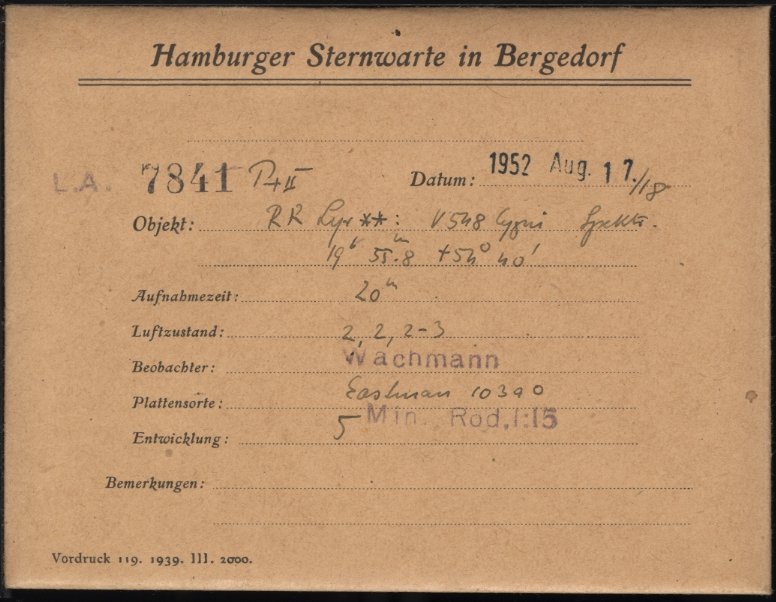 Hamburger Sternwarte in Bergedorf
L.A. 7841 P+II Datum: 1952 Aug. 17./18
Objekt: RR Lyr **: V548 Cygni Spektr.
19h 55m.8 +54° 40'
Aufnahmezeit: 20m
Luftzustand: 2, 2, 2-3
Beobachter: Wachmann
Plattensorte: Eastman 103aO
Entwicklung: 5 Min. Rod. 1:15
Bemerkungen:
Vordruck 119. 1939. III. 2000.